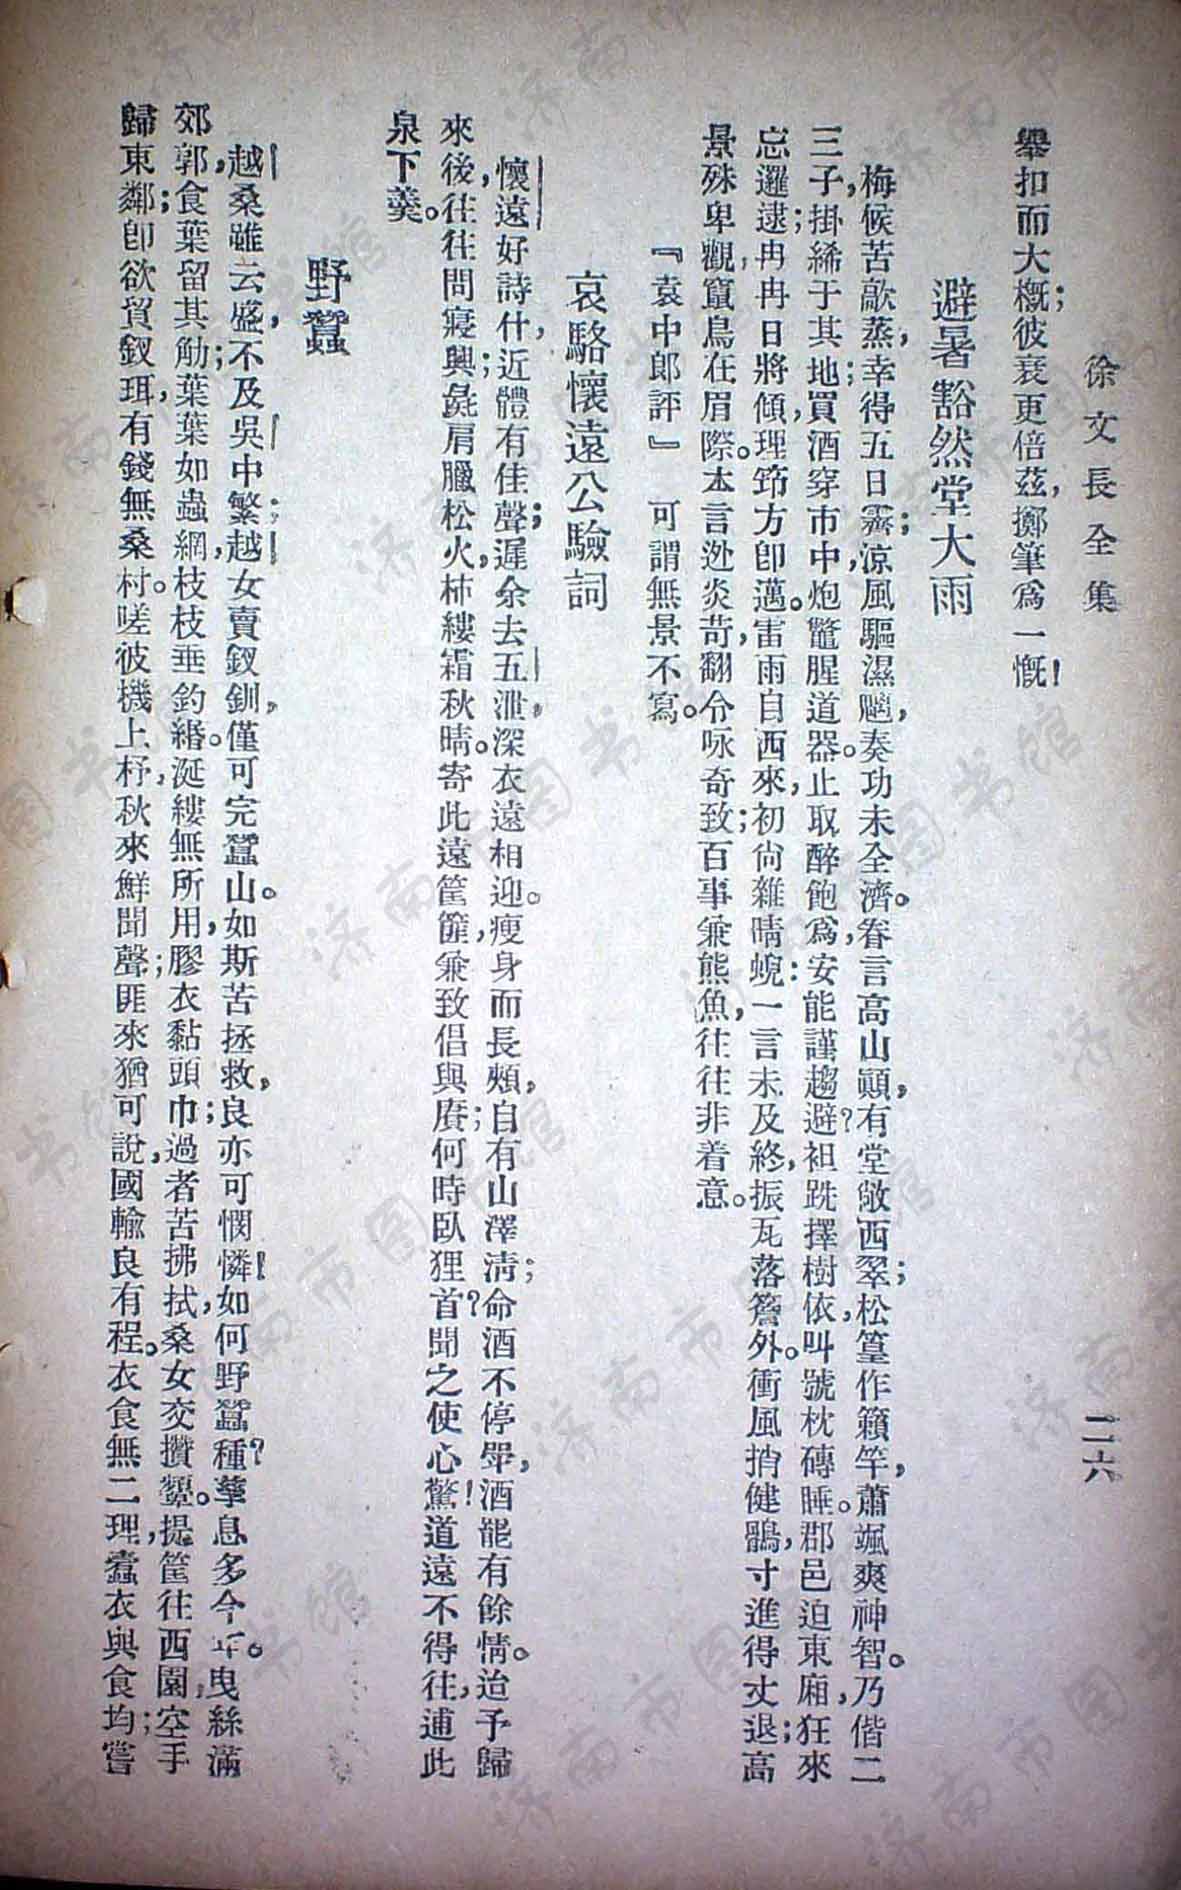 徐文長全集　二六
舉扣而大槪；彼衰更倍茲，擲筆爲一慨！
避暑豁然堂大雨
梅候苦歊蒸，幸得五日霽；涼風驅濕颸，奏功未全濟。眷言高山顚，有堂敞西翠；松篁作籟竽，蕭颯爽神智。乃偕二
三子，掛絺于其地；買酒穿市中，炮鼈腥道器。止取醉飽爲，安能謹趨避？袒跣擇樹依，叫號枕磚睡。郡邑迫東廂，狂來
忘邏逮；冉冉日將傾，理筇方卽邁。雷雨自西來，初尙雜晴蜺；一言未及終，振瓦落簷外。衝風捎健鶻，寸進得丈退；高
景殊卑觀，竄鳥在眉際。本言逃炎苛，翻令咏奇致；百事兼熊魚，往往非着意。
『袁中郎評』　可謂無景不寫。
哀駱懷遠公驗詞
懷遠好詩什，近體有佳聲；遲余去五泄，深衣遠相迎。瘦身而長頰，自有山澤淸；命酒不停斝，酒能有餘情。迨予歸
來後，往往問寢興；彘肩臘松火，柿縷霜秋晴。寄此遠筐篚，兼致倡與賡；何時臥狸首？聞之使心驚！道遠不得往，逋此
泉下羹。
野蠶
越桑雖云盛，不及吳中繁；越女賣釵釧，僅可完蠶山。如斯苦拯救，良亦可憫憐！如何野蠶種？孳息多今年。曳絲滿
郊郭，食葉留其觔；葉葉如蟲網，枝枝垂釣緡。涎縷無所用，膠衣黏頭巾；過者苦拂拭，桑女交攢顰。提筐往西園，空手
歸東鄰；卽欲貿釵珥，有錢無桑村。嗟彼機上杼，秋來鮮聞聲；匪來猶可說，國輸良有程。衣食無二理，蠹衣與食均；嘗